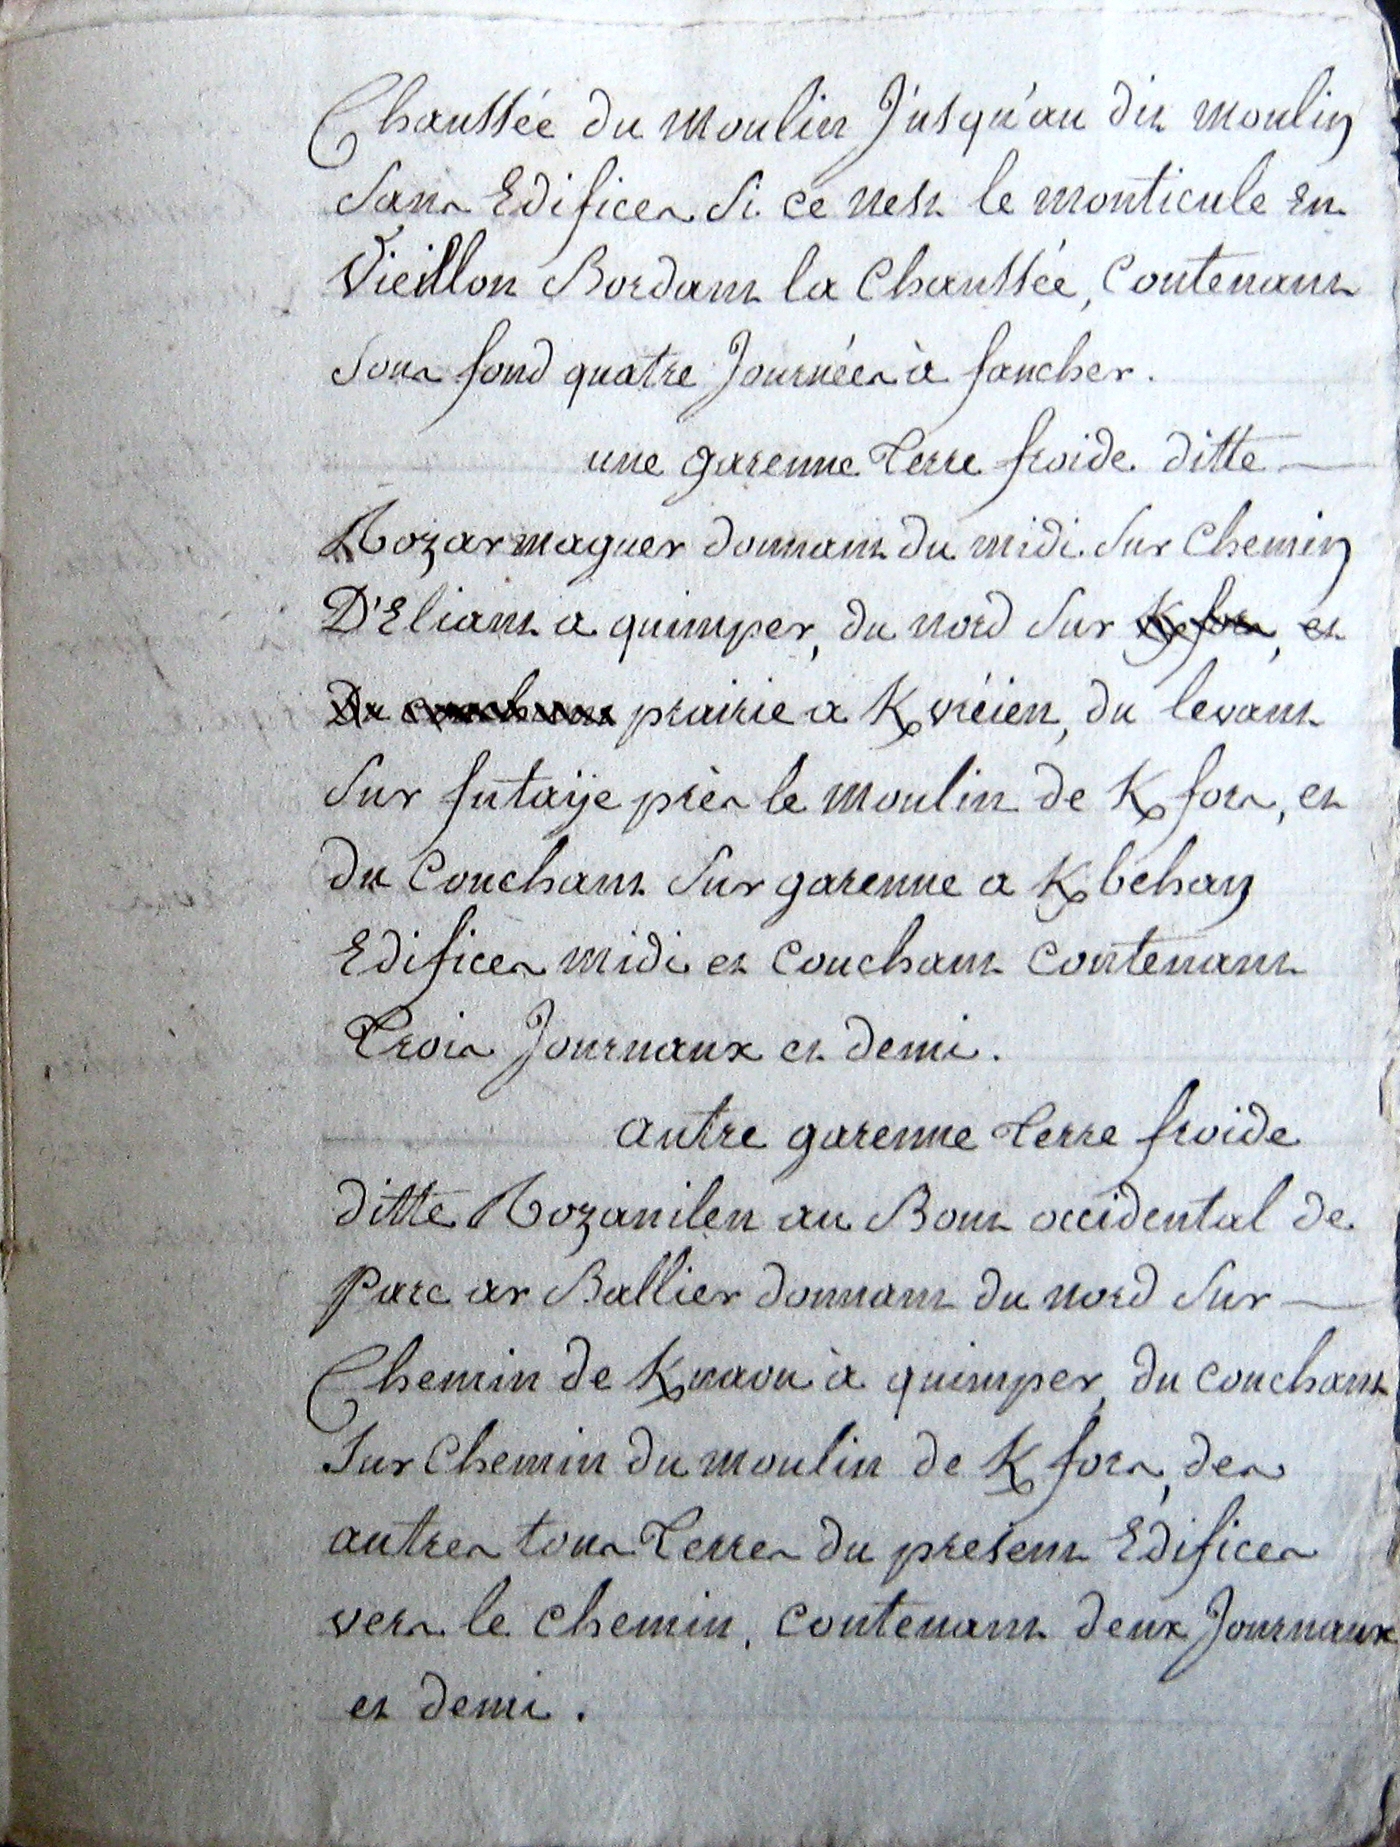 Chaussée du moulin Jusqu'au dit moulin
Sans Edifices Si ce nest le monticule En
Vieillon Bordant la Chaussée, Contenant
Sous fond quatre Journées à faucher.
une garenne Terre froide ditte
Rozarmaguer donnant du midi Sur Chemin
D'Eliant a quimper, du nord Sur K fors, et
Du couchant prairie a K vréien, du levant
Sur futaÿe près le moulin de K fors, et
du Couchant Sur garenne a K bihan
Edifices midi et Couchant Contenant
Trois Journaux et demi.
autre garenne Terre froide
ditte Rozanilen au Bout occidental de
Parc ar Ballier donnant du nord Sur
Chemin de K naou à quimper, du couchant
Sur Chemin du moulin de K fors, des
autres tous Terres du present Edifices
vers le chemin. Contenant deux Journaux
et demi.